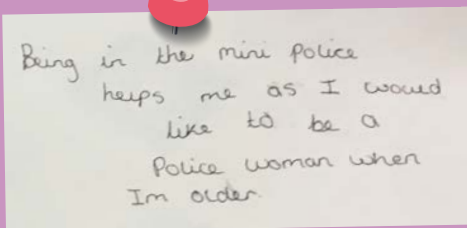 Being in the mini police
helps me as I would
like to be a
Police woman when
Im older.